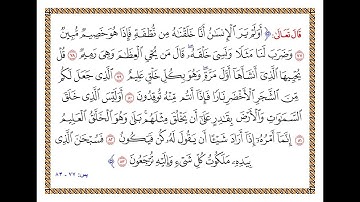 قَالَ تَعَالَىٰ: ﴿ أَوَلَمْ يَرَ الْإِنسَٰنُ أَنَّا خَلَقْنَٰهُ مِن نُّطْفَةٍ فَإِذَا هُوَ خَصِيمٌ مُّبِينٌ
٧٧ وَضَرَبَ لَنَا مَثَلًا وَنَسِيَ خَلْقَهُۥ قَالَ مَن يُحْيِ الْعِظَٰمَ وَهِيَ رَمِيمٌ ٧٨ قُلْ
يُحْيِيهَا الَّذِي أَنشَأَهَا أَوَّلَ مَرَّةٍ وَهُوَ بِكُلِّ خَلْقٍ عَلِيمٌ ٧٩ الَّذِي جَعَلَ لَكُم
مِّنَ الشَّجَرِ الْأَخْضَرِ نَارًا فَإِذَا أَنتُم مِّنْهُ تُوقِدُونَ ٨٠ أَوَلَيْسَ الَّذِي خَلَقَ
السَّمَٰوَٰتِ وَالْأَرْضَ بِقَٰدِرٍ عَلَىٰ أَن يَخْلُقَ مِثْلَهُم بَلَىٰ وَهُوَ الْخَلَّٰقُ الْعَلِيمُ
٨١ إِنَّمَا أَمْرُهُۥ إِذَا أَرَادَ شَيْـًٔا أَن يَقُولَ لَهُۥ كُن فَيَكُونُ ٨٢ فَسُبْحَٰنَ الَّذِي
بِيَدِهِۦ مَلَكُوتُ كُلِّ شَيْءٍ وَإِلَيْهِ تُرْجَعُونَ ٨٣ ﴾
يس: ٧٧ - ٨٣